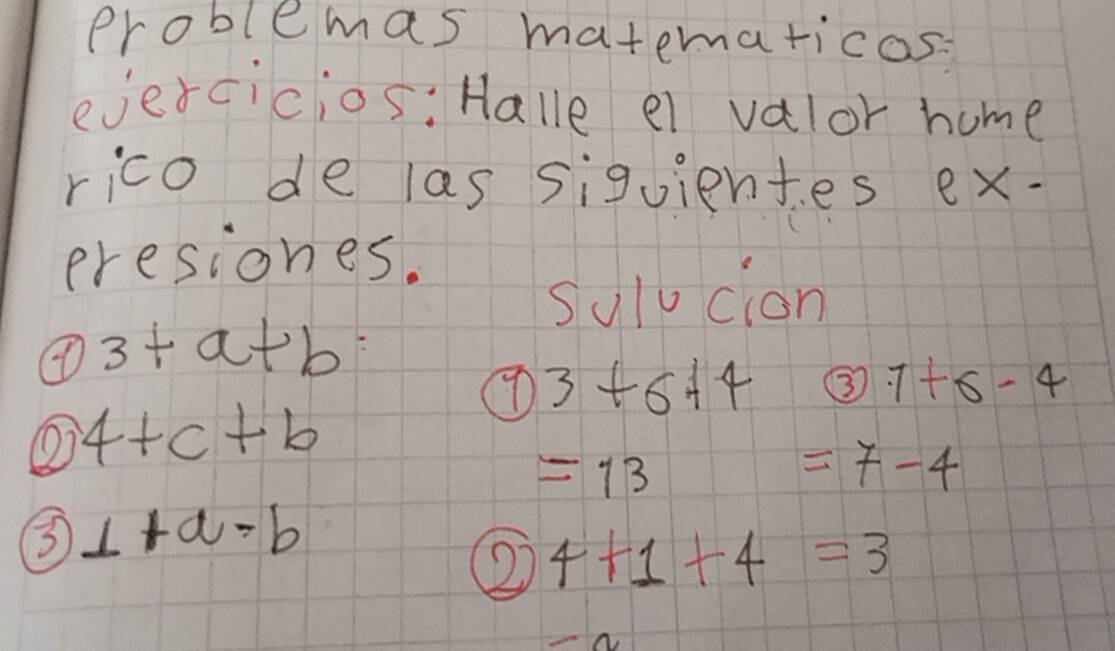 problemas matematicos:
ejercicios: Halle el valor nume
rico de las siguientes ex-
presiones.
Sulucion
① 3+a+b:
② 4+c+b
③ 1+a-b
① 3+6+4
=13
② 4+1+4
③ 1+6-4
=7-4
=3